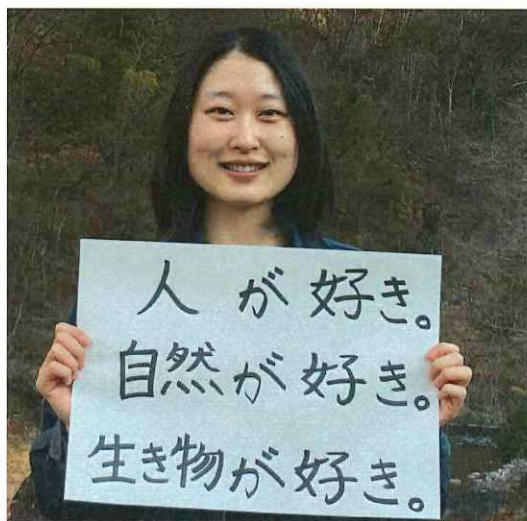 人が好き。
自然が好き。
生き物が好き。